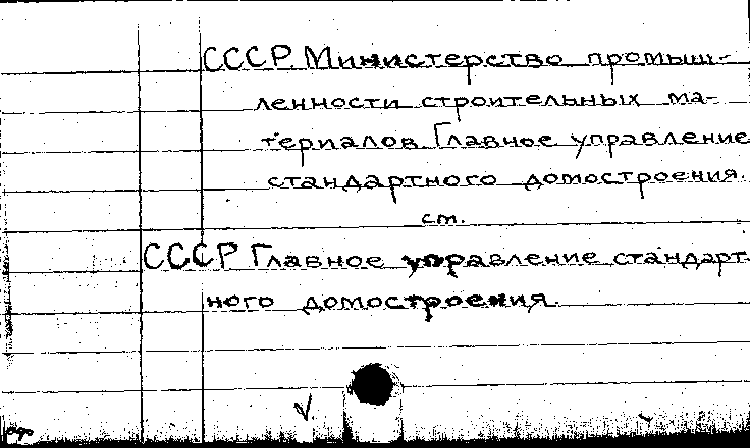 СССР. Министерство промыш-
ленности строительных ма-
териалов. Главное управление
стандартного домостроения.
см.
СССР Главное управление стандарт
ного домостроения.